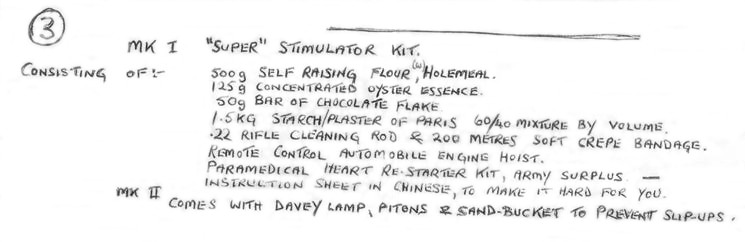 3
MK I "SUPER" STIMULATOR KIT.
CONSISTING OF:- 500g SELF RAISING FLOUR, (W)HOLEMEAL.
125g CONCENTRATED OYSTER ESSENCE.
50g BAR OF CHOCOLATE FLAKE
1.5KG STARCH/PLASTER OF PARIS 60/40 MIXTURE BY VOLUME.
.22 RIFLE CLEANING ROD & 200 METRES SOFT CREPE BANDAGE.
REMOTE CONTROL AUTOMOBILE ENGINE HOIST.
PARAMEDICAL HEART RE-STARTER KIT, ARMY SURPLUS —
INSTRUCTION SHEET IN CHINESE, TO MAKE IT HARD FOR YOU.
MK II COMES WITH DAVEY LAMP, PITONS & SAND-BUCKET TO PREVENT SLIP-UPS.